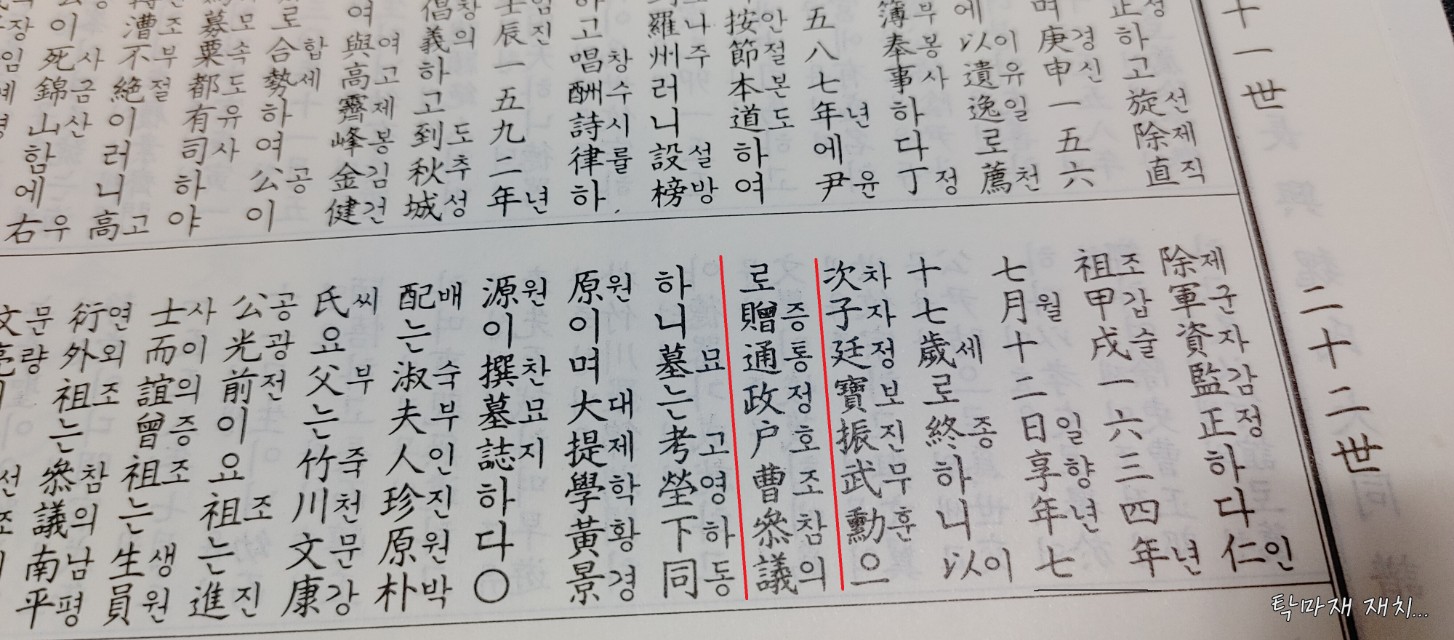 十一世
正하고旋除直
성 선제직
며庚申一五六
경신
에以遺逸로薦
이유일 천
簿奉事하다丁
부봉사 정
五八七年에尹
년 윤
按節本道하여
안절본도
羅州러니設榜
나주 설방
하고唱酬詩律하
창수시를
壬辰一五九二年
임진 년
倡義하고到秋城
창의 도추성
여與高霽峰金健
여고제봉김건
로合勢하여公이
합세 공
募粟都有司하야
모속도유사
漕不絶이러니高
조부절 고
이死錦山함에右
사금산 우
二十二世
除軍資監正하다仁
제군자감정 인
祖甲戌一六三四年
조갑술 년
七月十二日享年七
월 일향년
十七歲로終하니以
세 종 이
次子廷寶振武勳으
차자정보진무훈
로贈通政戶曹參議
증통정호조참의
하니墓는考塋下同
묘 고영하동
原이며大提學黃景
원 대제학황경
源이撰墓誌하다○
원 찬묘지
配는淑夫人珍原朴
배 숙부인진원박
氏요父는竹川文康
씨 부 죽천문강
公光前이요祖는進
공광전 조 진
士而誼曾祖는生員
사이의증조 생원
衍外祖는參議南平
연외조 참의남평
文亮
문량
탁마재 재치...